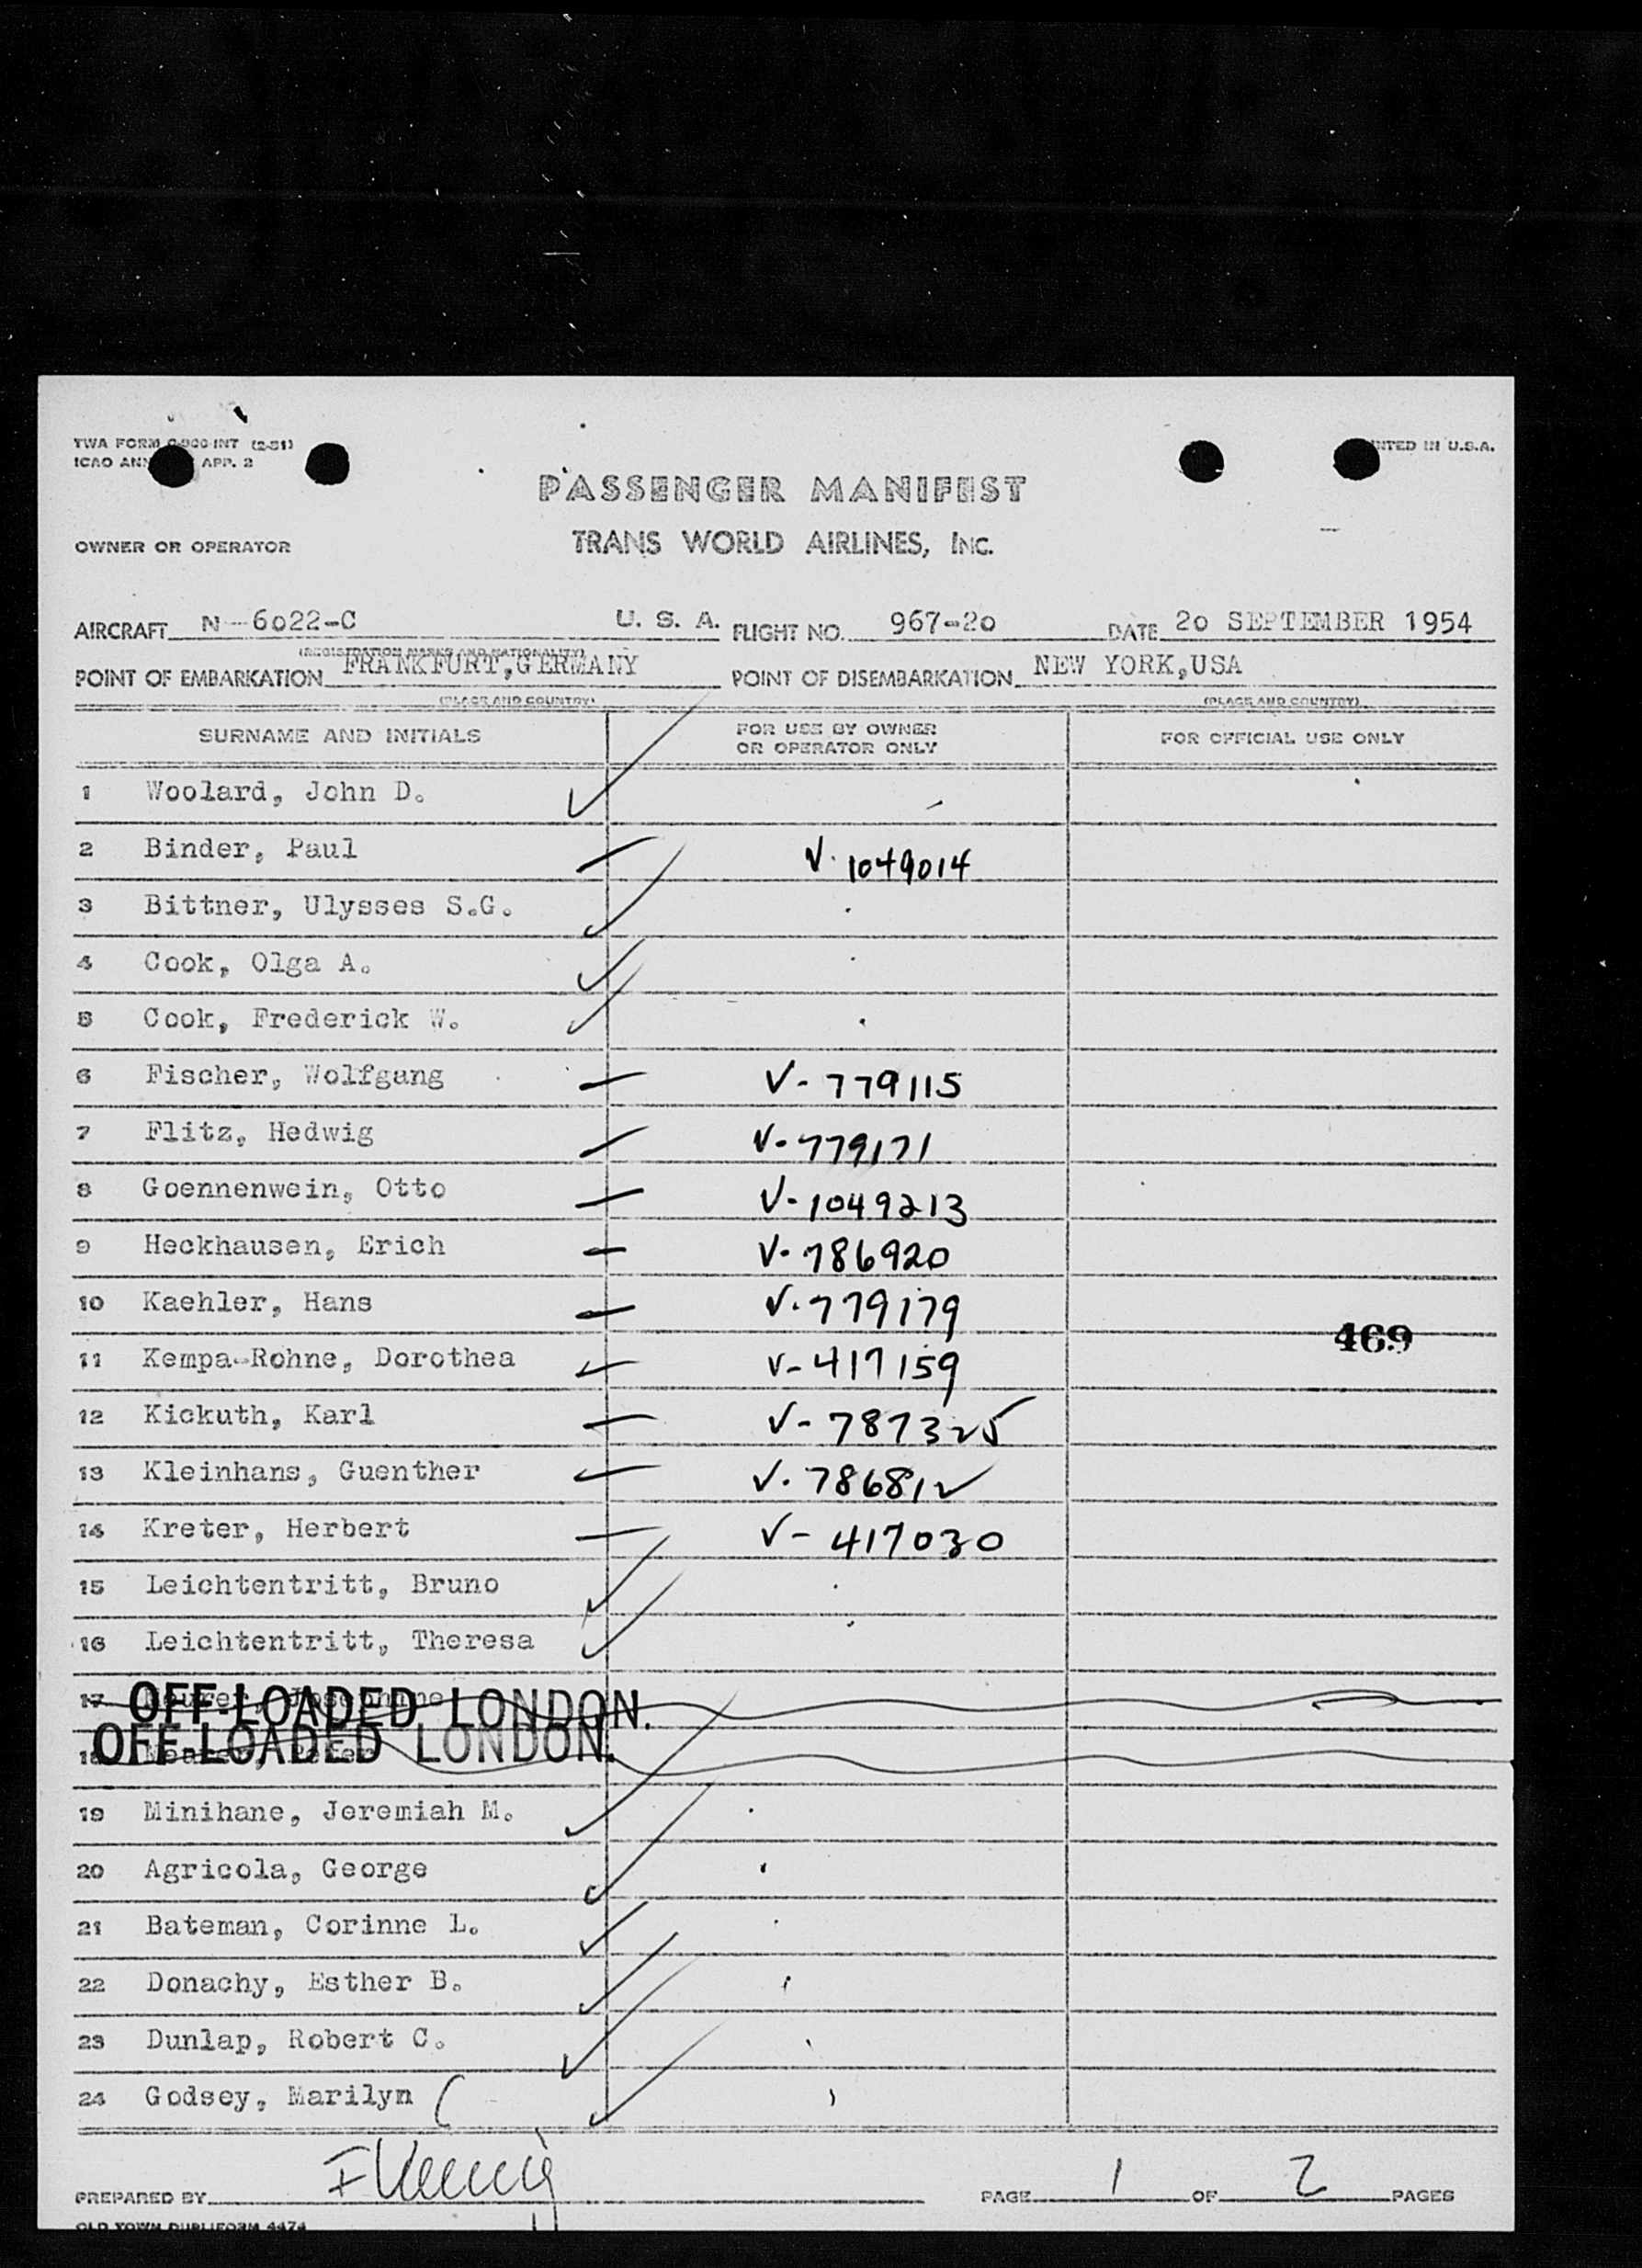 TWA FORM INT (2-51)
ICAO APP. 2
INTED IN U.S.A.
PASSENGER MANIFEST
OWNER OR OPERATOR TRANS WORLD AIRLINES, INC.
AIRCRAFT N-6022-C U. S. A. FLIGHT NO. 967-20 DATE 20 SEPTEMBER 1954
(REGISTRATION MARKS AND NATIONALITY)
POINT OF EMBARKATION FRANKFURT,GERMANY POINT OF DISEMBARKATION NEW YORK,USA
(PLACE AND COUNTRY) (PLACE AND COUNTRY)
SURNAME AND INITIALS FOR USE BY OWNER OR OPERATOR ONLY FOR OFFICIAL USE ONLY
1 Woolard, John D.
2 Binder, Paul V. 1049014
3 Bittner, Ulysses S.G.
4 Cook, Olga A.
5 Cook, Frederick W.
6 Fischer, Wolfgang V-779115
7 Flitz, Hedwig V-779171
8 Goennenwein, Otto V-1049213
9 Heckhausen, Erich V-786920
10 Kaehler, Hans V.779179
469
11 Kempa-Rohne, Dorothea V-417159
12 Kickuth, Karl V-787325
13 Kleinhans, Guenther V.786812
14 Kreter, Herbert V-417030
15 Leichtentritt, Bruno
16 Leichtentritt, Theresa
17 OFF-LOADED LONDON.
18 OFF-LOADED LONDON.
19 Minihane, Jeremiah M.
20 Agricola, George
21 Bateman, Corinne L.
22 Donachy, Esther B.
23 Dunlap, Robert C.
24 Godsey, Marilyn
PREPARED BY PAGE 1 OF 2 PAGES
OLD TOWN DUPLIFORM 4474